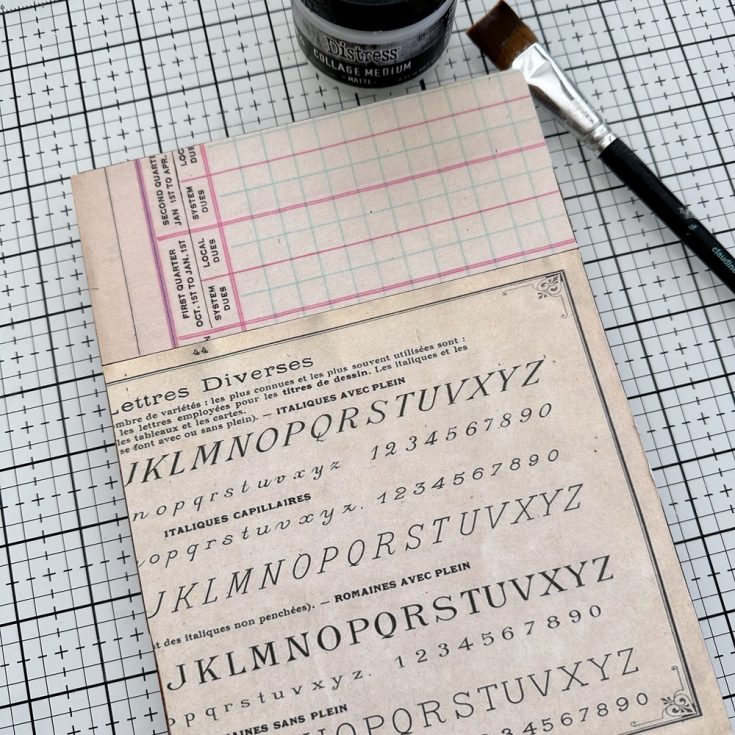 Distress
COLLAGE MEDIUM
MATTE
SECOND QUARTE
JAN 1ST TO APR.
LOC
DUE
SYSTEM
DUES
FIRST QUARTER
OCT. 1ST TO JAN. 1ST
LOCAL
DUES
SYSTEM
DUES
44
Lettres Diverses
mbre de variétés : les plus connues et les plus souvent utilisées sont :
les lettres employées pour les titres de dessin. Les italiques et les
les tableaux et les cartes.
se font avec ou sans plein). — ITALIQUES AVEC PLEIN
JKLMNOPQRSTUVXYZ
nopqrstuvxyz 1234567890
ITALIQUES CAPILLAIRES
opqrstuvxyz. 1234567890
JKLMNOPQRSTUVXYZ
t des italiques non penchées). — ROMAINES AVEC PLEIN
JKLMNOPQRSTUVXYZ
pqrstuvxyz. 1234567890
AINES SANS PLEIN
OPQRSTUVXYZ
4567890
claudine